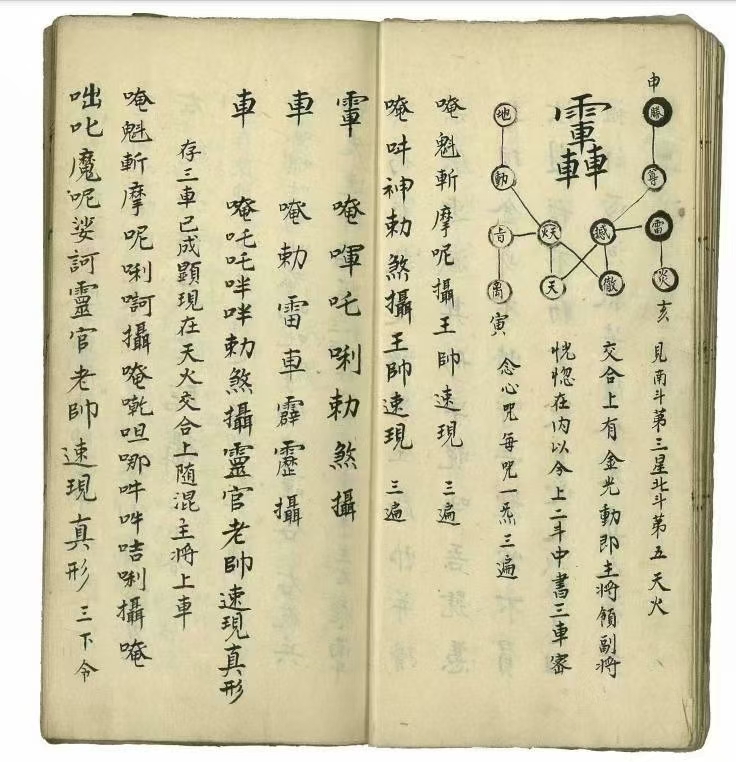 申
勝
尊
雷
炎
亥
撼
徹
天
地
動
离
寅
見南斗第三星北斗第五天火
交合上有金光動即主將領副將
恍惚在内以令上二斗中書三車審
念心咒每咒一炁三遍
唵魁斬摩呢攝王帥速現 三遍
唵吽神勅煞攝王帥速現 三遍
唵㖷吒唎勅煞攝
車 唵勅雷車霹靂攝
車 唵吒吒哶哶勅煞攝靈官老帥速現真形
存三車已成顯現在天火交合上随混主將上車
唵魁斬摩呢唎訶攝唵呾哪吽吽咭唎攝唵
咄叱魔呢娑訶靈官老帥速現真形 三下令